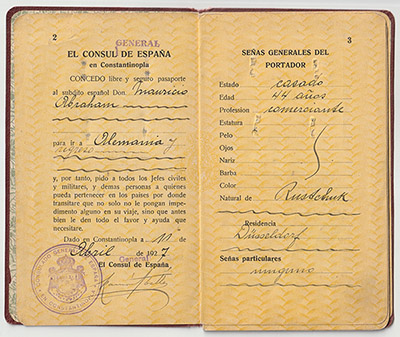 2
GENERAL
EL CONSUL DE ESPAÑA
en Constantinopla
CONCEDO libre y seguro pasaporte
al subdito español Don Mauricio
Abraham
para ir a Alemania y
regreso
y, por tanto, pido a todos los Jefes civiles
y militares, y demas personas a quienes
pueda pertenecer en los paises por donde
tramitare que no solo no le pongan
impedimento alguno en su viaje, sino que antes
bien le den todo el favor y ayuda que
necesitare.
Dado en Constantinopla a 11 de
Abril de 1927
General
El Consul de España,
3
SEÑAS GENERALES DEL
PORTADOR
Estado casado
Edad 44 años
Profession comerciante
Estatura
Pelo
Ojos
Nariz
Barba
Color
Natural de Rustchuk
Residencia
Düsseldorf
Señas particulares
ninguna